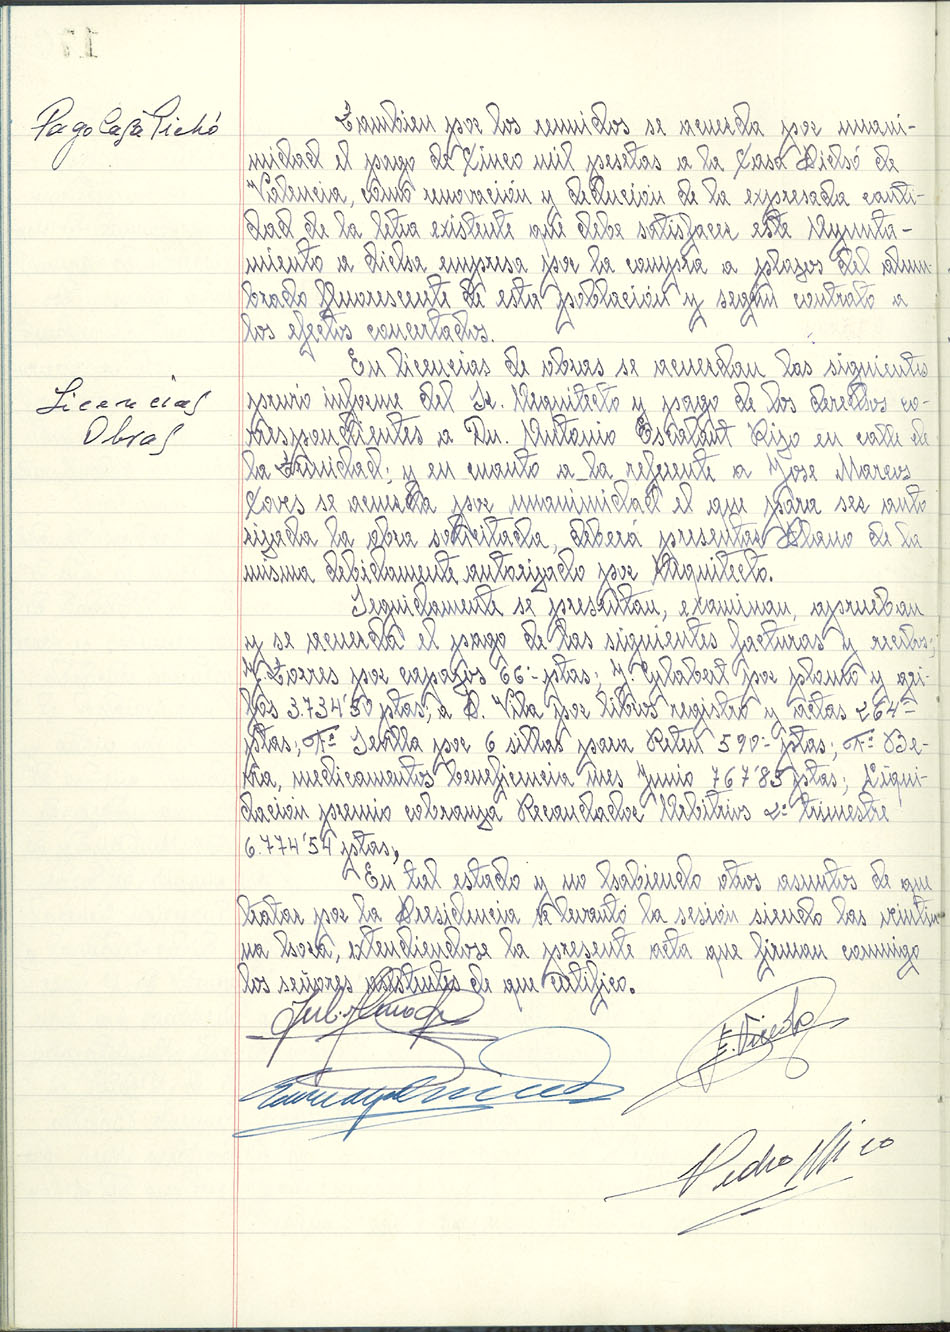 Pago Casa Pichó
Tambien por los reunidos se acuerda por unani-
midad el pago de Cinco mil pesetas a la Casa Pichó de
Valencia, como renovación y deducion de la expresada canti-
dad de la letra existente que debe satisfacer este Ayunta-
miento a dicha empresa por la compra a plazos del alum-
brado fluorescente de esta población y según contrato a
los efectos concertados.
Licencias
Obras
En licencias de obras se acuerdan las siguientes
previo informe del Sr. Arquitecto y pago de los derechos co-
rrespondientes a Dn. Antonio Rizo en calle de
la Trinidad; y en cuanto a la referente a Jose Marcos
se acuerda por unanimidad el que para ser auto
rizada la obra solicitada, deberá presentar Plano de la
misma debidamente autorizado por Arquitecto.
Seguidamente se presentan, examinan, aprueban
y se acuerda el pago de las siguientes facturas y recibos;
Torres por capazos 66- ptas; J. Gylabert por planto y
3.734'50 ptas; a D. Vila por libros registro y actas 264-
ptas; Fª Sevilla por 6 sillas para 590- ptas; Fª
medicamentos beneficencia mes Junio 767'85 ptas; Liqui-
dación premio cobranza Recaudador Arbitrios 2º trimestre
6.774'54 ptas,
En tal estado y no habiendo otros asuntos de que
tratar por la Presidencia se levantó la sesión siendo las veintiu-
na hora, extendiendose la presente acta que firman conmigo
los señores asistentes de que certifico.
E. Picedo
Pedro Mico